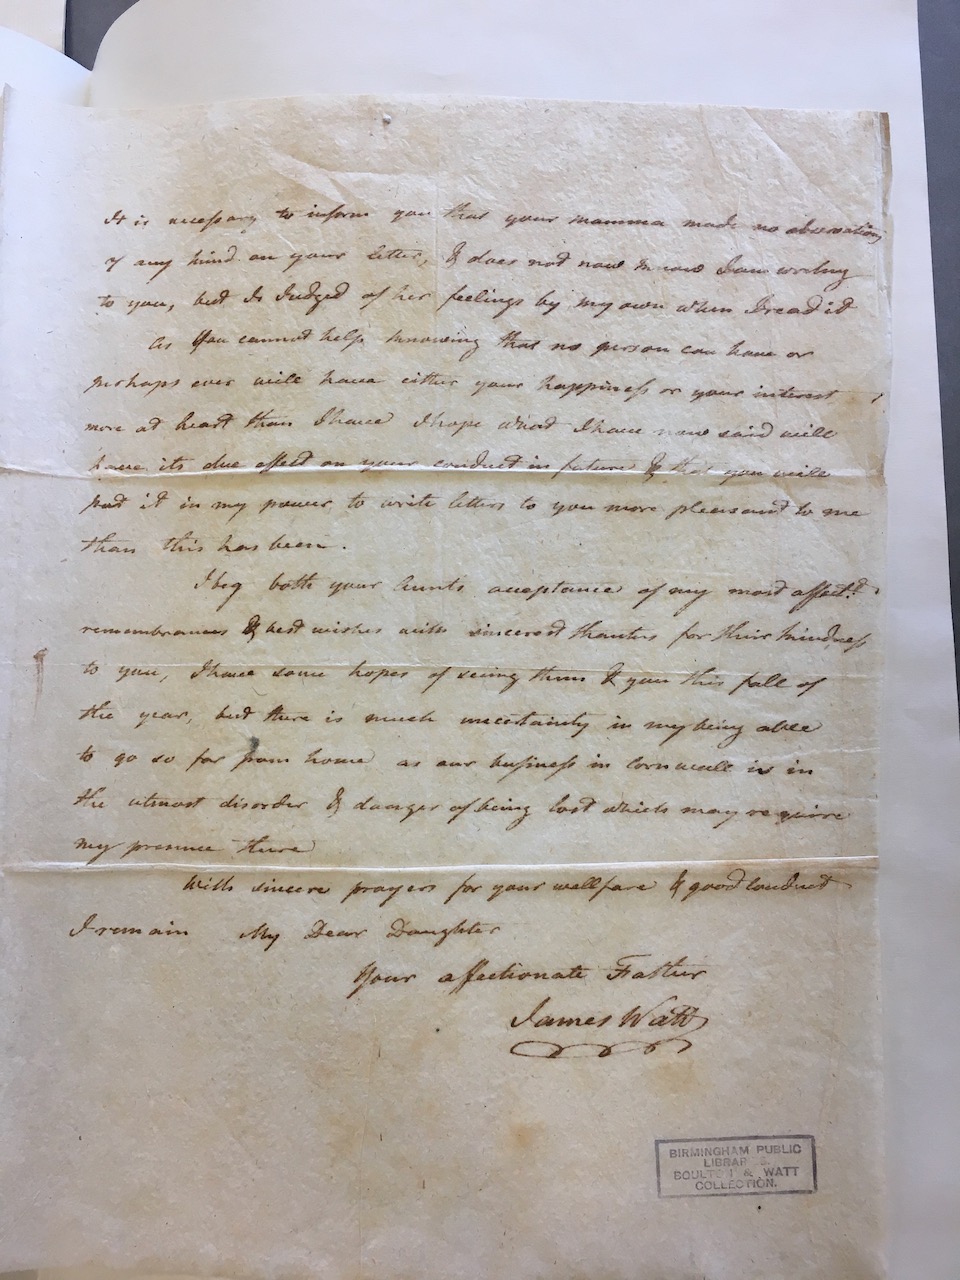 It is necessary to inform you that your mamma made no observations
of any kind on your letter, & does not now know I am writing
to you, but I Judged of her feelings by my own when I read it
As You cannot help knowing that no person can have or
perhaps ever will have either your happiness or your interest
more at heart than I have I hope what I have now said will
have its due effect on your conduct in future & that you will
put it in my power to write letters to you more pleasant to me
than this has been.
I beg both your Aunts acceptance of my most affect.te
remembrances & best wishes with sincerest thanks for their kindness
to you, I have some hopes of seeing them & you this fall of
the year, but there is much uncertainty in my being able
to go so far from home as our business in Cornwall is in
the utmost disorder & danger of being lost which may require
my presence there
With sincere prayers for your wellfare & good Conduct
I remain My Dear Daughter
Your affectionate Father
James Watt
BIRMINGHAM PUBLIC
LIBRARIES.
BOULTON & WATT
COLLECTION.